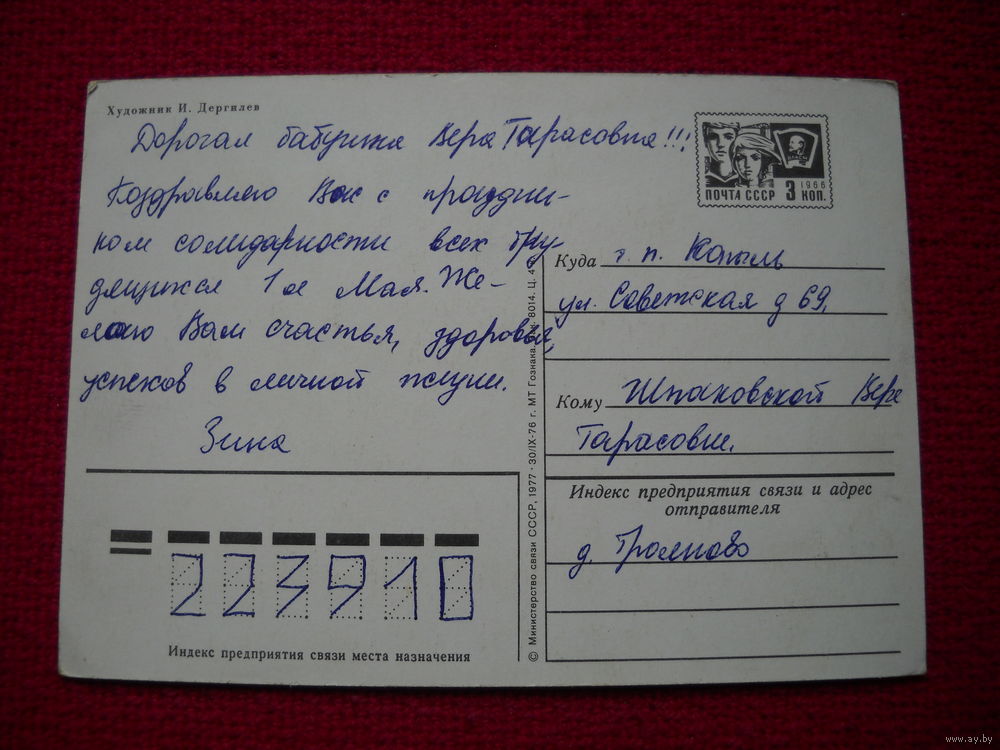 Художник И. Дергилев
Дорогая бабушка Вера Тарасовна!!!
Поздравляю Вас с праздни-
ком солидарности всех тру
дящихся 1 ое Мая. Же-
лаю Вам счастья, здоровья,
успехов в личной жизни.
Зина
ПОЧТА СССР 3 КОП.
1966
Куда г. п. Копыль
ул. Советская д 69.
Кому Шпаковской Вере
Тарасовне.
Индекс предприятия связи и адрес
отправителя
д.
223910
Индекс предприятия связи места назначения
© Министерство связи СССР, 1977 · 30/IX-76 г. МТ Гознака. 8014. Ц. 4
www.ay.by